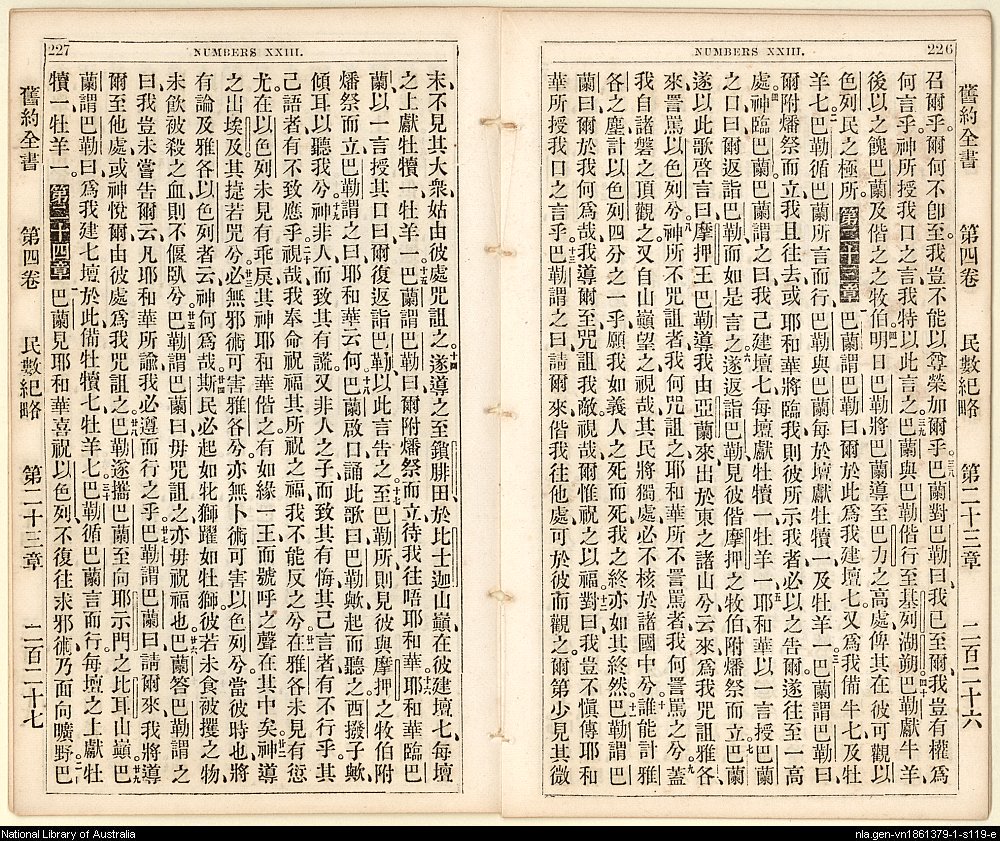 NUMBERS XXIII.
226
舊約全書 第四卷 民數紀略 第二十三章 二百二十六
召爾乎。爾何不卽至。我豈不能以尊榮加爾乎。三八巴蘭對巴勒曰、我已至爾、我豈有權爲
何言乎。神所授我口之言、我特以此言之。三九巴蘭與巴勒偕行、至基列湖朔。四十巴勒獻牛羊、
後以之餽巴蘭及偕之之牧伯。四一明日巴勒將巴蘭導至巴力之高處、俾其在彼可觀以
色列民之極所。第二十三章一巴蘭謂巴勒曰、爾於此爲我建壇七、又爲我備牛七、及牡
羊七。二巴勒循巴蘭所言而行、巴勒與巴蘭每於壇獻牡犢一、及牡羊一。三巴蘭謂巴勒曰、
爾附燔祭而立、我且往去、或耶和華將臨我、則彼所示我者、必以之告爾、遂往至一高
處。四神臨巴蘭、巴蘭謂之曰、我已建壇七、每壇獻牡犢一、牡羊一。五耶和華以一言授巴蘭
之口曰、爾返詣巴勒而如是言之。六遂返詣巴勒、見彼偕摩押之牧伯附燔祭而立。七巴蘭
遂以此歌啓言曰、摩押王巴勒導我由亞蘭來、出於東之諸山兮、云來爲我咒詛雅各、
來詈罵以色列兮。八神所不咒詛者、我何咒詛之、耶和華所不詈罵者、我何詈罵之兮。九蓋
我自諸磐之頂觀之、又自山巔望之、視哉其民將獨處、必不核於諸國中兮。十誰能計雅
各之塵、計以色列四分之一乎、願我如義人之死而死、我之終亦如其終然。巴勒謂巴
蘭曰、爾於我何爲哉、我導爾至咒詛我敵、視哉爾惟祝之以福。對曰、我豈不愼傳耶和
華所授我口之言乎。十三巴勒謂之曰、請爾來偕我往他處、可於彼而觀之、爾第少見其微
227
NUMBERS XXIII.
末、不見其大衆、姑由彼處咒詛之。十四遂導之至鎖腓田、於比士迦山巔、在彼建壇七、每壇
之上、獻牡犢一、牡羊一。十五巴蘭謂巴勒曰、爾附燔祭而立、待我往晤耶和華。十六耶和華臨巴
蘭、以一言授其口曰、爾復返詣巴勒、以此言告之。十七至巴勒所、則見彼與摩押之牧伯附
燔祭而立、巴勒謂之曰、耶和華云何。十八巴蘭啟口誦此歌曰、巴勒歟、起而聽之、西撥子歟、
傾耳以聽我兮。十九神非人而致其有謊、又非人之子、而致其有悔、其己言者有不行乎、其
己語者有不致應乎。二十視哉我奉命祝福、其所祝之福、我不能反之兮。廿一在雅各未見有愆
尤、在以色列未見有乖戾、其神耶和華偕之、有如緣一王而號呼之聲、在其中矣。廿二神導
之出埃及、其捷若兕兮。廿三必無邪術可害雅各兮、亦無卜術可害以色列兮、當彼時也、將
有論及雅各以色列者云、神何爲哉。廿四斯民必起如牝獅、躍如牡獅、彼若未食被攫之物、
未飲被殺之血、則不偃臥兮。廿五巴勒謂巴蘭曰、毋咒詛之、亦毋祝福也。廿六巴蘭答巴勒謂之
曰、我豈未嘗告爾云、凡耶和華所諭、我必遵而行之乎。廿七巴勒謂巴蘭曰、請爾來、我將導
爾至他處、或神悅爾由彼處爲我咒詛之。廿八巴勒遂攜巴蘭至向耶示門之比耳山巔。廿九巴
蘭謂巴勒曰、爲我建七壇、於此備牡犢七、牡羊七。三十巴勒循巴蘭言而行、每壇之上獻牡
犢一、牡羊一。第二十四章一巴蘭見耶和華喜祝以色列、不復往求邪術、乃面向曠野。二巴
舊約全書 第四卷 民數紀略 第二十三章 二百二十七
National Library of Australia
nla.gen-vn1861379-1-s119-e